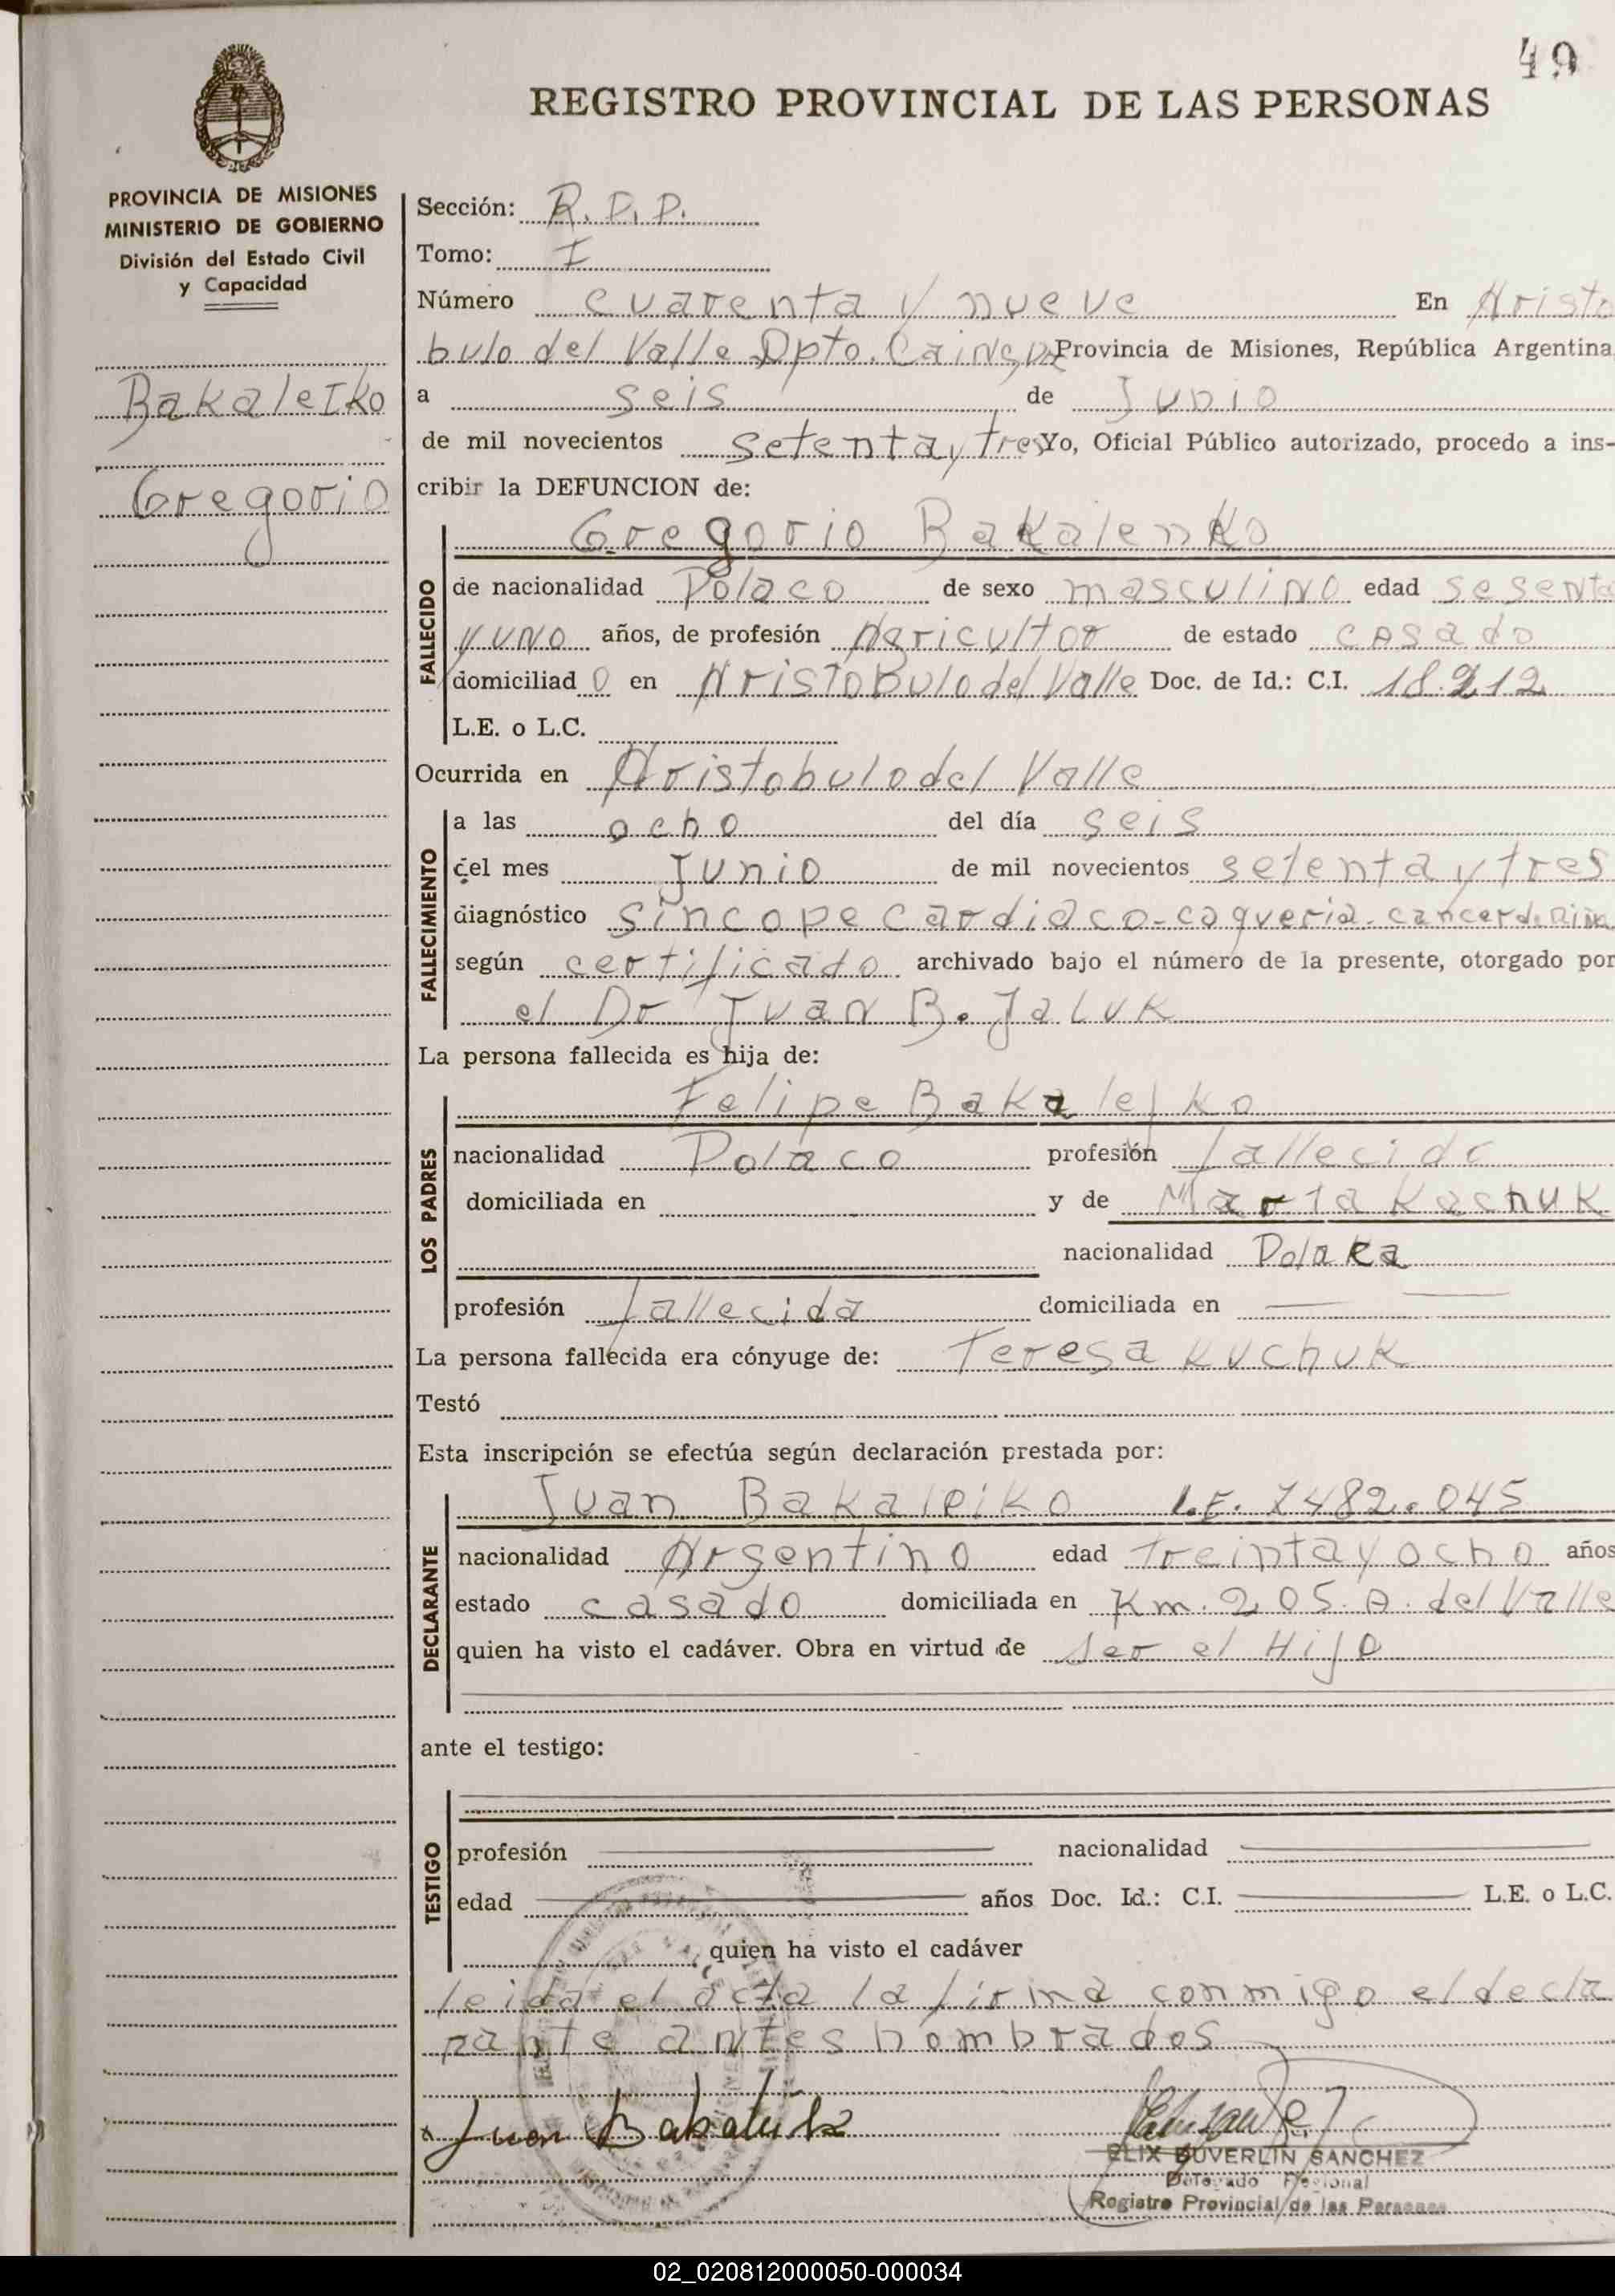 49
REGISTRO PROVINCIAL DE LAS PERSONAS
PROVINCIA DE MISIONES
MINISTERIO DE GOBIERNO
División del Estado Civil
y Capacidad
Bakaleiko
Gregorio
Sección: R.P.P.
Tomo: I
Número cuarenta y nueve En Aristo
bulo del Valle Dpto. Cainguaz Provincia de Misiones, República Argentina
a seis de Junio
de mil novecientos setenta y tres Yo, Oficial Público autorizado, procedo a ins-
cribir la DEFUNCION de:
Gregorio Bakalenko
FALLECIDO
de nacionalidad Polaco de sexo masculino edad sesenta
y uno años, de profesión Agricultor de estado casado
domiciliad o en Aristobulo del Valle Doc. de Id.: C.I. 18.212
L.E. o L.C.
Ocurrida en Aristobulo del Valle
FALLECIMIENTO
a las ocho del día seis
del mes Junio de mil novecientos setenta y tres
diagnóstico sincope cardiaco-caqueria-cancer de
según certificado archivado bajo el número de la presente, otorgado por
el Dr Juan B. Jaluk
La persona fallecida es hija de:
LOS PADRES
Felipe Bakalejko
nacionalidad Polaco profesión fallecido
domiciliada en y de Maria Kachuk
nacionalidad Polaka
profesión fallecida domiciliada en
La persona fallecida era cónyuge de: Teresa Kuchuk
Testó
Esta inscripción se efectúa según declaración prestada por:
DECLARANTE
Juan Bakaleiko L.E. 7482.045
nacionalidad Argentino edad treinta y ocho años
estado casado domiciliada en Km. 205. A. del Valle
quien ha visto el cadáver. Obra en virtud de ser el Hijo
ante el testigo:
TESTIGO
profesión nacionalidad
edad años Doc. Id.: C.I. L.E. o L.C.
quien ha visto el cadáver
leida el acta la firma conmigo el decla
rante antes nombrados
Juan Bakaleiko
ELIX BUVERLIN SANCHEZ
Delegado Regional
Registro Provincial de las Personas
02_020812000050-000034